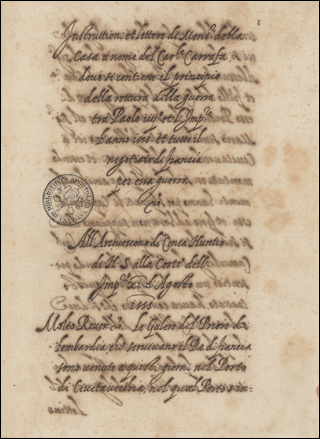 Instruttioni et lettere di Mons.r della
Casa a nome del Car.l Carrafa
doue si contiene il principio
della rottura della guerra
tra Paolo iiij et l'Imp.re
l'anno 1555 et tutto il
negotiato di francia
per essa guerra
All'Arciuescouo di Consa Nuntio
di N. S. alla Corte dell'
Imp.re di Agosto
1555
Molto Reuer.do Le Galere del Priore di
lombardia che seruiuano il Re di francia
sono uenute a questi giorni nel Porto
di Ciuitauecchia, nel qual Porto